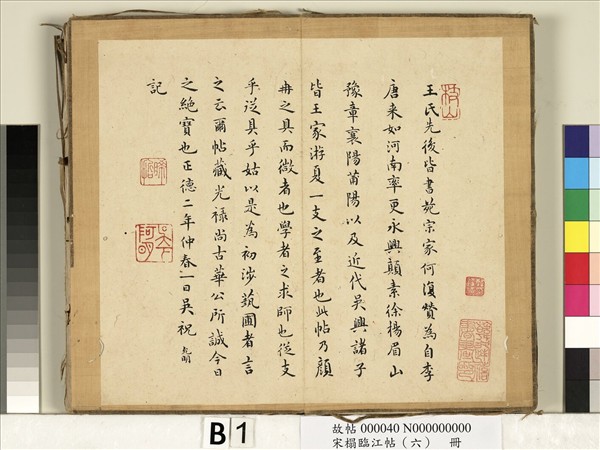 王氏先後皆書苑宗家何復贊為自李
唐来如河南率更永興顛素徐楊眉山
豫章襄陽莆陽以及近代吴興諸子
皆王家游夏一支之至者也此帖乃顔
冉之具而微者也學者之求師也從支
乎從具乎姑以是為初涉蓺圃者言
之云爾帖藏光禄尚古華公所誠今日
之絶寶也正德二年仲春一日吴祝允明
記
枝山
B 1
故帖 000040 N000000000
宋榻臨江帖（六） 冊